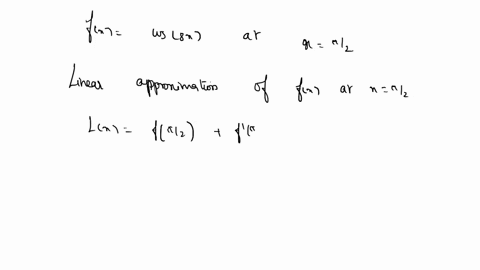 f(x) = cos(8x) at x = π/2
Linear approximation of f(x) at x = π/2
L(x) = f(π/2) + f'(π